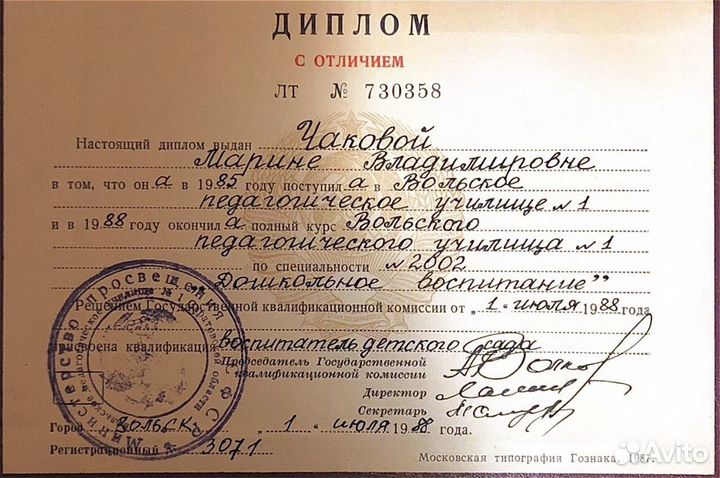 ДИПЛОМ
С ОТЛИЧИЕМ
ЛТ № 730358
Настоящий диплом выдан Чаковой
Марине Владимировне
в том, что она в 1985 году поступила в Вольское
педагогическое училище №1
и в 1988 году окончила полный курс Вольского
педагогического училища №1
по специальности №2002
"Дошкольное воспитание"
Решением Государственной квалификационной комиссии от „1" июля 1988 года
присвоена квалификация воспитатель детского сада
Председатель Государственной
квалификационной комиссии
Директор
Секретарь
Город Вольск „1" июля 1988 года.
Регистрационный № 3071
Московская типография Гознака. 1987.
Министерство просвещения РСФСР
Avito